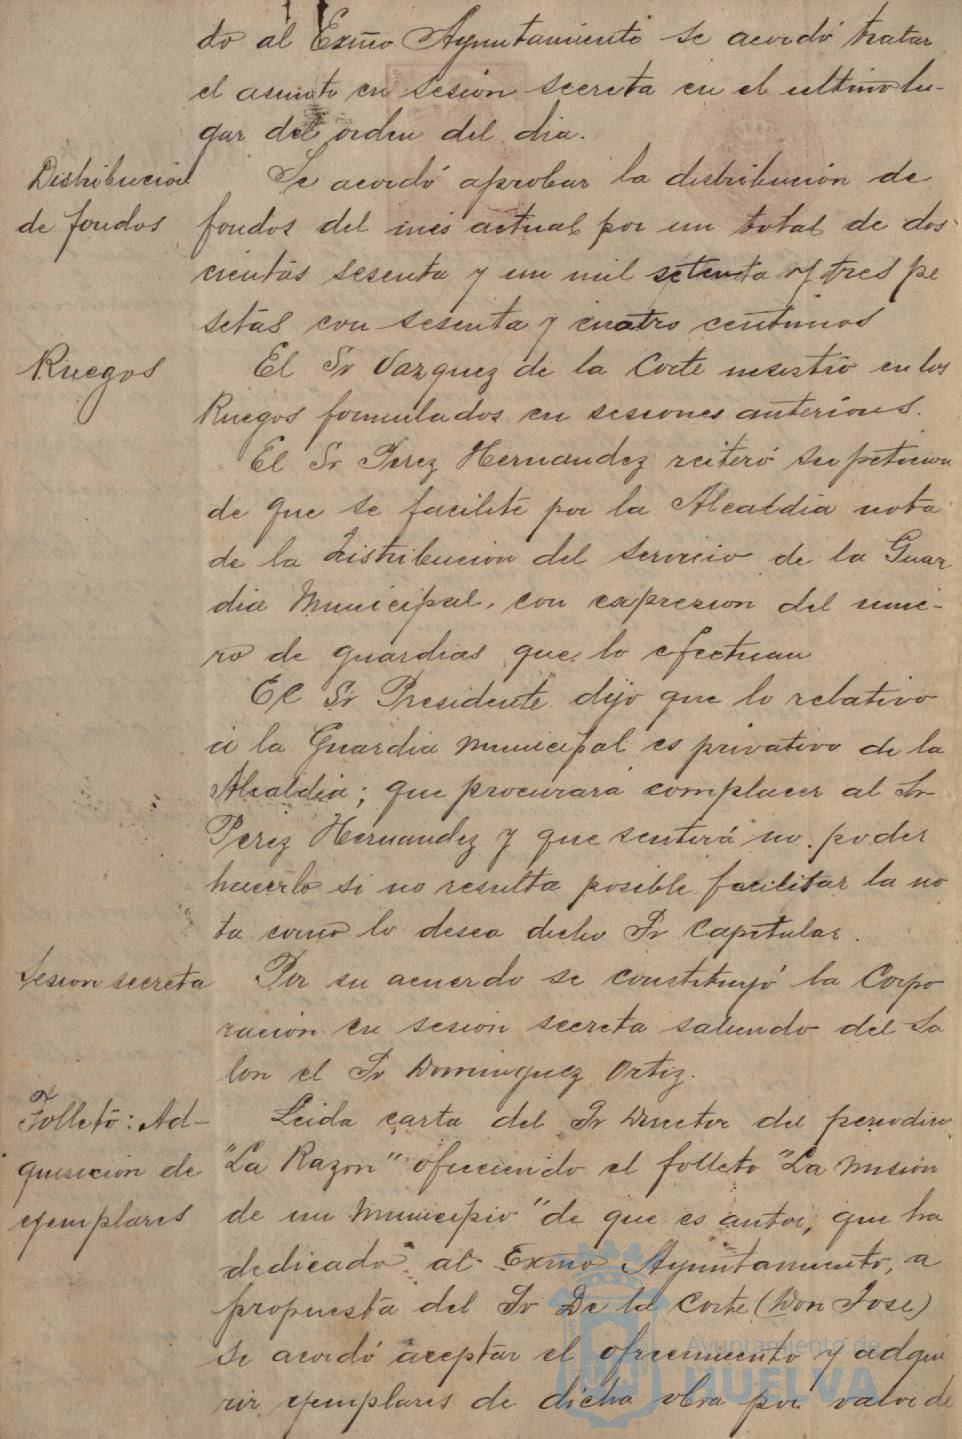 do al Exmo Ayuntamiento se acordó tratar
el asunto en sesion secreta en el ultimo lu-
gar del orden del dia.
Distribucion
de fondos
Se acordó aprobar la distribución de
fondos del mes actual por un total de dos-
cientas sesenta y un mil setenta y tres pe
setas con sesenta y cuatro centimos
Ruegos
El Sr Vazquez de la Corte insistió en los
Ruegos formulados en sesiones anteriores.
El Sr Perez Hernandez reiteró su peticion
de que se facilite por la Alcaldia nota
de la distribucion del servicio de la Guar
dia Municipal, con expresion del nume-
ro de guardias que lo efectuan
El Sr Presidente dijo que lo relativo
á la Guardia municipal es privativo de la
Alcaldia; que procurará complacer al Sr
Perez Hernandez y que sentirá no poder
hacerlo si no resulta posible facilitar la no
ta como lo desea dicho Sr Capitular.
Sesion secreta
Por su acuerdo se constituyó la Corpo
racion en sesion secreta saliendo del Sa
lon el Sr Dominguez Ortiz.
Folleto: Ad-
quisicion de
ejemplares
Leida carta del Sr Director del periodico
"La Razon" ofreciendo el folleto "La mision
de un Municipio" de que es autor, que ha
dedicado al Exmo Ayuntamiento, a
propuesta del Sr De la Corte (Don Jose)
se acordó aceptar el ofrecimiento y adqui
rir ejemplares de dicha obra por valor de
Ayuntamiento de
HUELVA